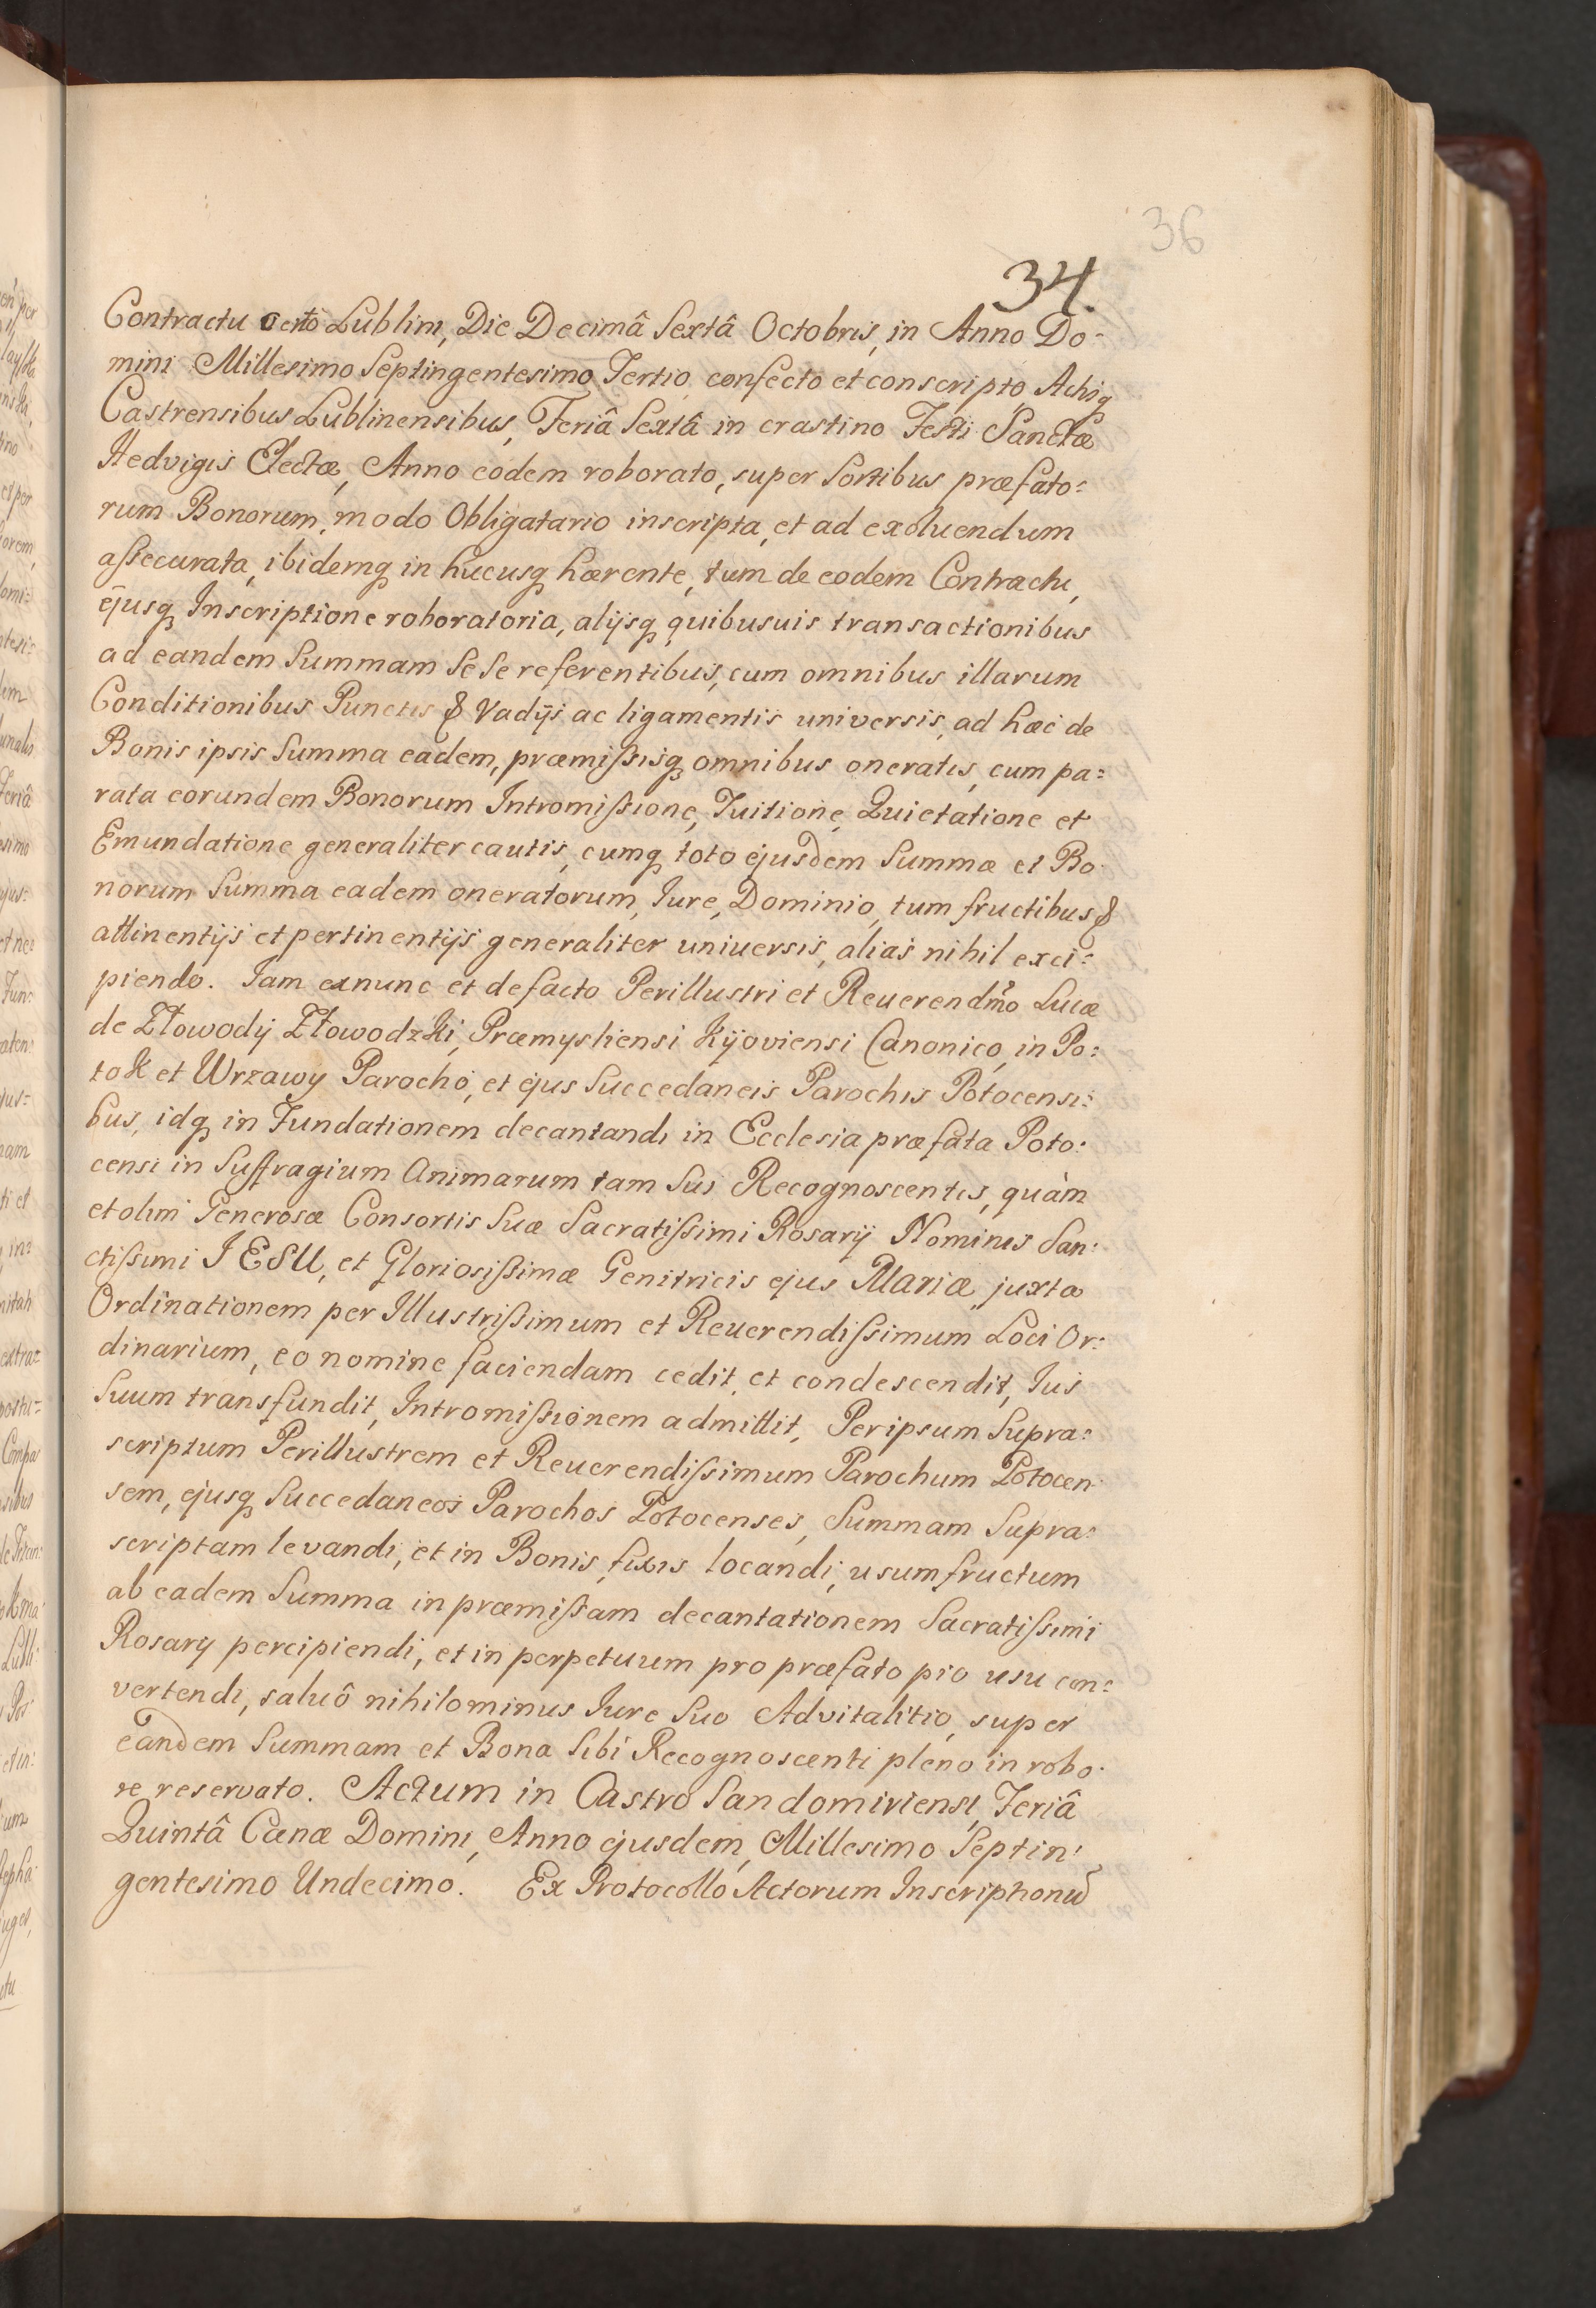 36
34.
Contractu certô Lublini, Die Decimâ Sextâ Octobris, in Anno Do-
mini Millesimo Septingentesimo Tertio confecto et conscripto, Actisq
Castrensibus Lublinensibus, Feriâ Sextâ in crastino Festi Sanctæ
Hedvigis Electæ, Anno eodem roborato, super Sortibus præfato:
rum Bonorum, modo Obligatario inscripta, et ad exoluendum
assecurata, ibidemq in hucusq hærente, tum de eodem Contractu,
ejusq Inscriptione roboratoria, alijsq quibusuis transactionibus
ad eandem Summam Se Se referentibus, cum omnibus illarum
Conditionibus Punctis & Vadijs ac ligamentis universis, ad hæc de
Bonis ipsis Summa eadem, præmissisq omnibus oneratis, cum pa:
rata eorundem Bonorum Intromissione, Tuitione, Quietatione et
Emundatione generaliter cautis, cumq toto ejusdem Summæ et Bo
norum Summa eadem oneratorum, Iure, Dominio, tum fructibus &
attinentijs et pertinentijs generaliter uniuersis, alias nihil exci:
piendo. Iam exnunc et defacto Perillustri et Reuerendmo Lucæ
de Złowody Złowodzki, Præmysliensi Kijoviensi Canonico, in Po:
tok et Wrzawy Parocho, et ejus Succedaneis Parochis Potocensi:
bus, idq in Fundationem decantandi in Ecclesia præfata Poto:
censi in Suffragium Animarum tam Sui Recognoscentis, quàm
et olim Generosæ Consortis Suæ Sacratissimi Rosarij Nominis San:
ctissimi IESU, et Gloriosissimæ Genitricis ejus Mariæ, juxta
Ordinationem per Illustrissimum et Reuerendissimum Loci Or:
dinarium, eo nomine faciendam cedit, et condescendit, Ius
Suum transfundit, Intromissionem admittit, Per ipsum Supra:
scriptum Perillustrem et Reuerendissimum Parochum Potocen
sem, ejusq Succedaneos Parochos Potocenses, Summam Supra:
scriptam levandi, et in Bonis fixis locandi, usumfructum
ab eadem Summa in præmissam decantationem Sacratissimi
Rosary percipiendi, et in perpetuum pro præfato pio usu con:
vertendi, saluô nihilominus Iure Suo Advitalitio, super
eandem Summam et Bona Sibi Recognoscenti pleno in robo.
re reservato. Actum in Castro Sandomiriensi, Feriâ
Quintâ Cænæ Domini, Anno ejusdem, Millesimo Septin:
gentesimo Undecimo. Ex Protocollo Actorum Inscriptionũ